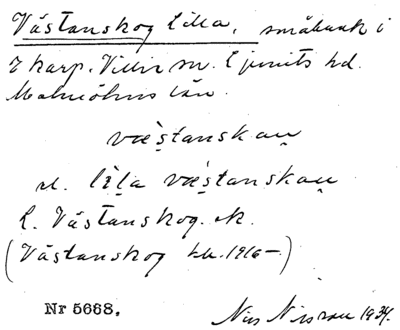 Västanskog Lilla, småbruk i
Skarp. Villie sn. Ljunits hd.
Malmöhus län.
væstanskau̯
el. lila væstanskau̯
L. Västanskog. ek.
(Västanskog kb. 1916—)
Nr 5668.
Nils Nilsson 1934.